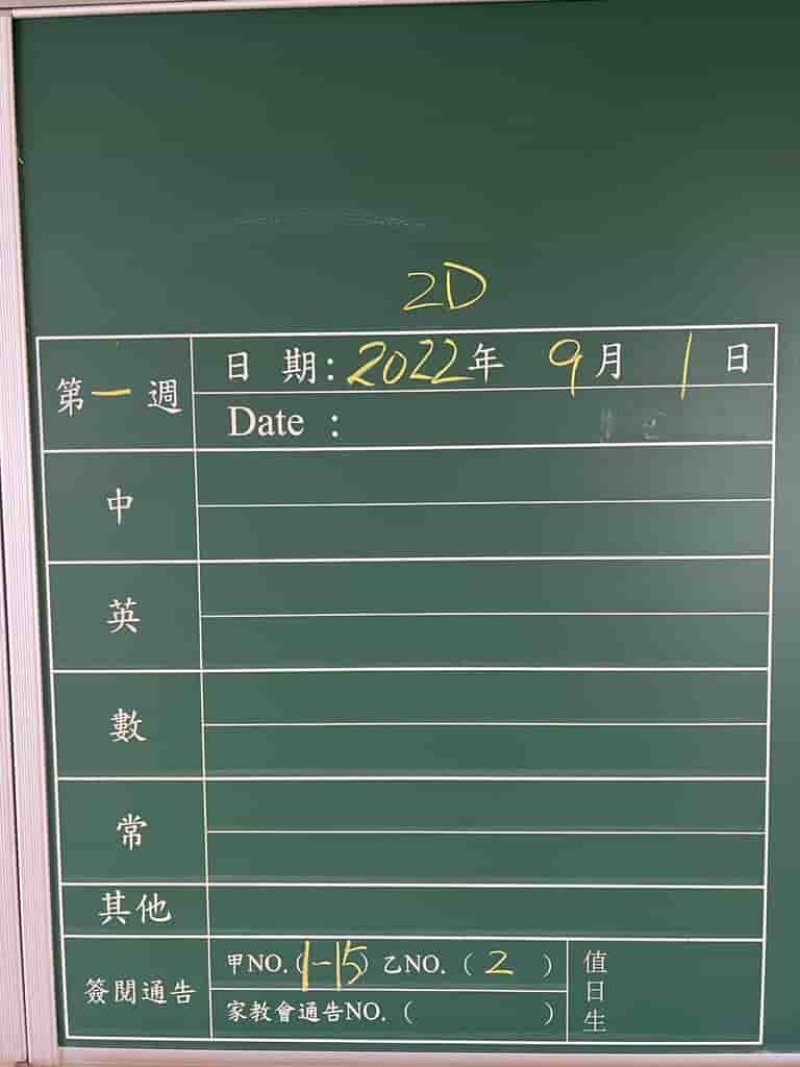 2D
第一週
日期:2022年 9月 1日
Date :
中
英
數
常
其他
簽閱通告
甲NO.(1-15) 乙NO.( 2 )
家教會通告NO.( )
值日生